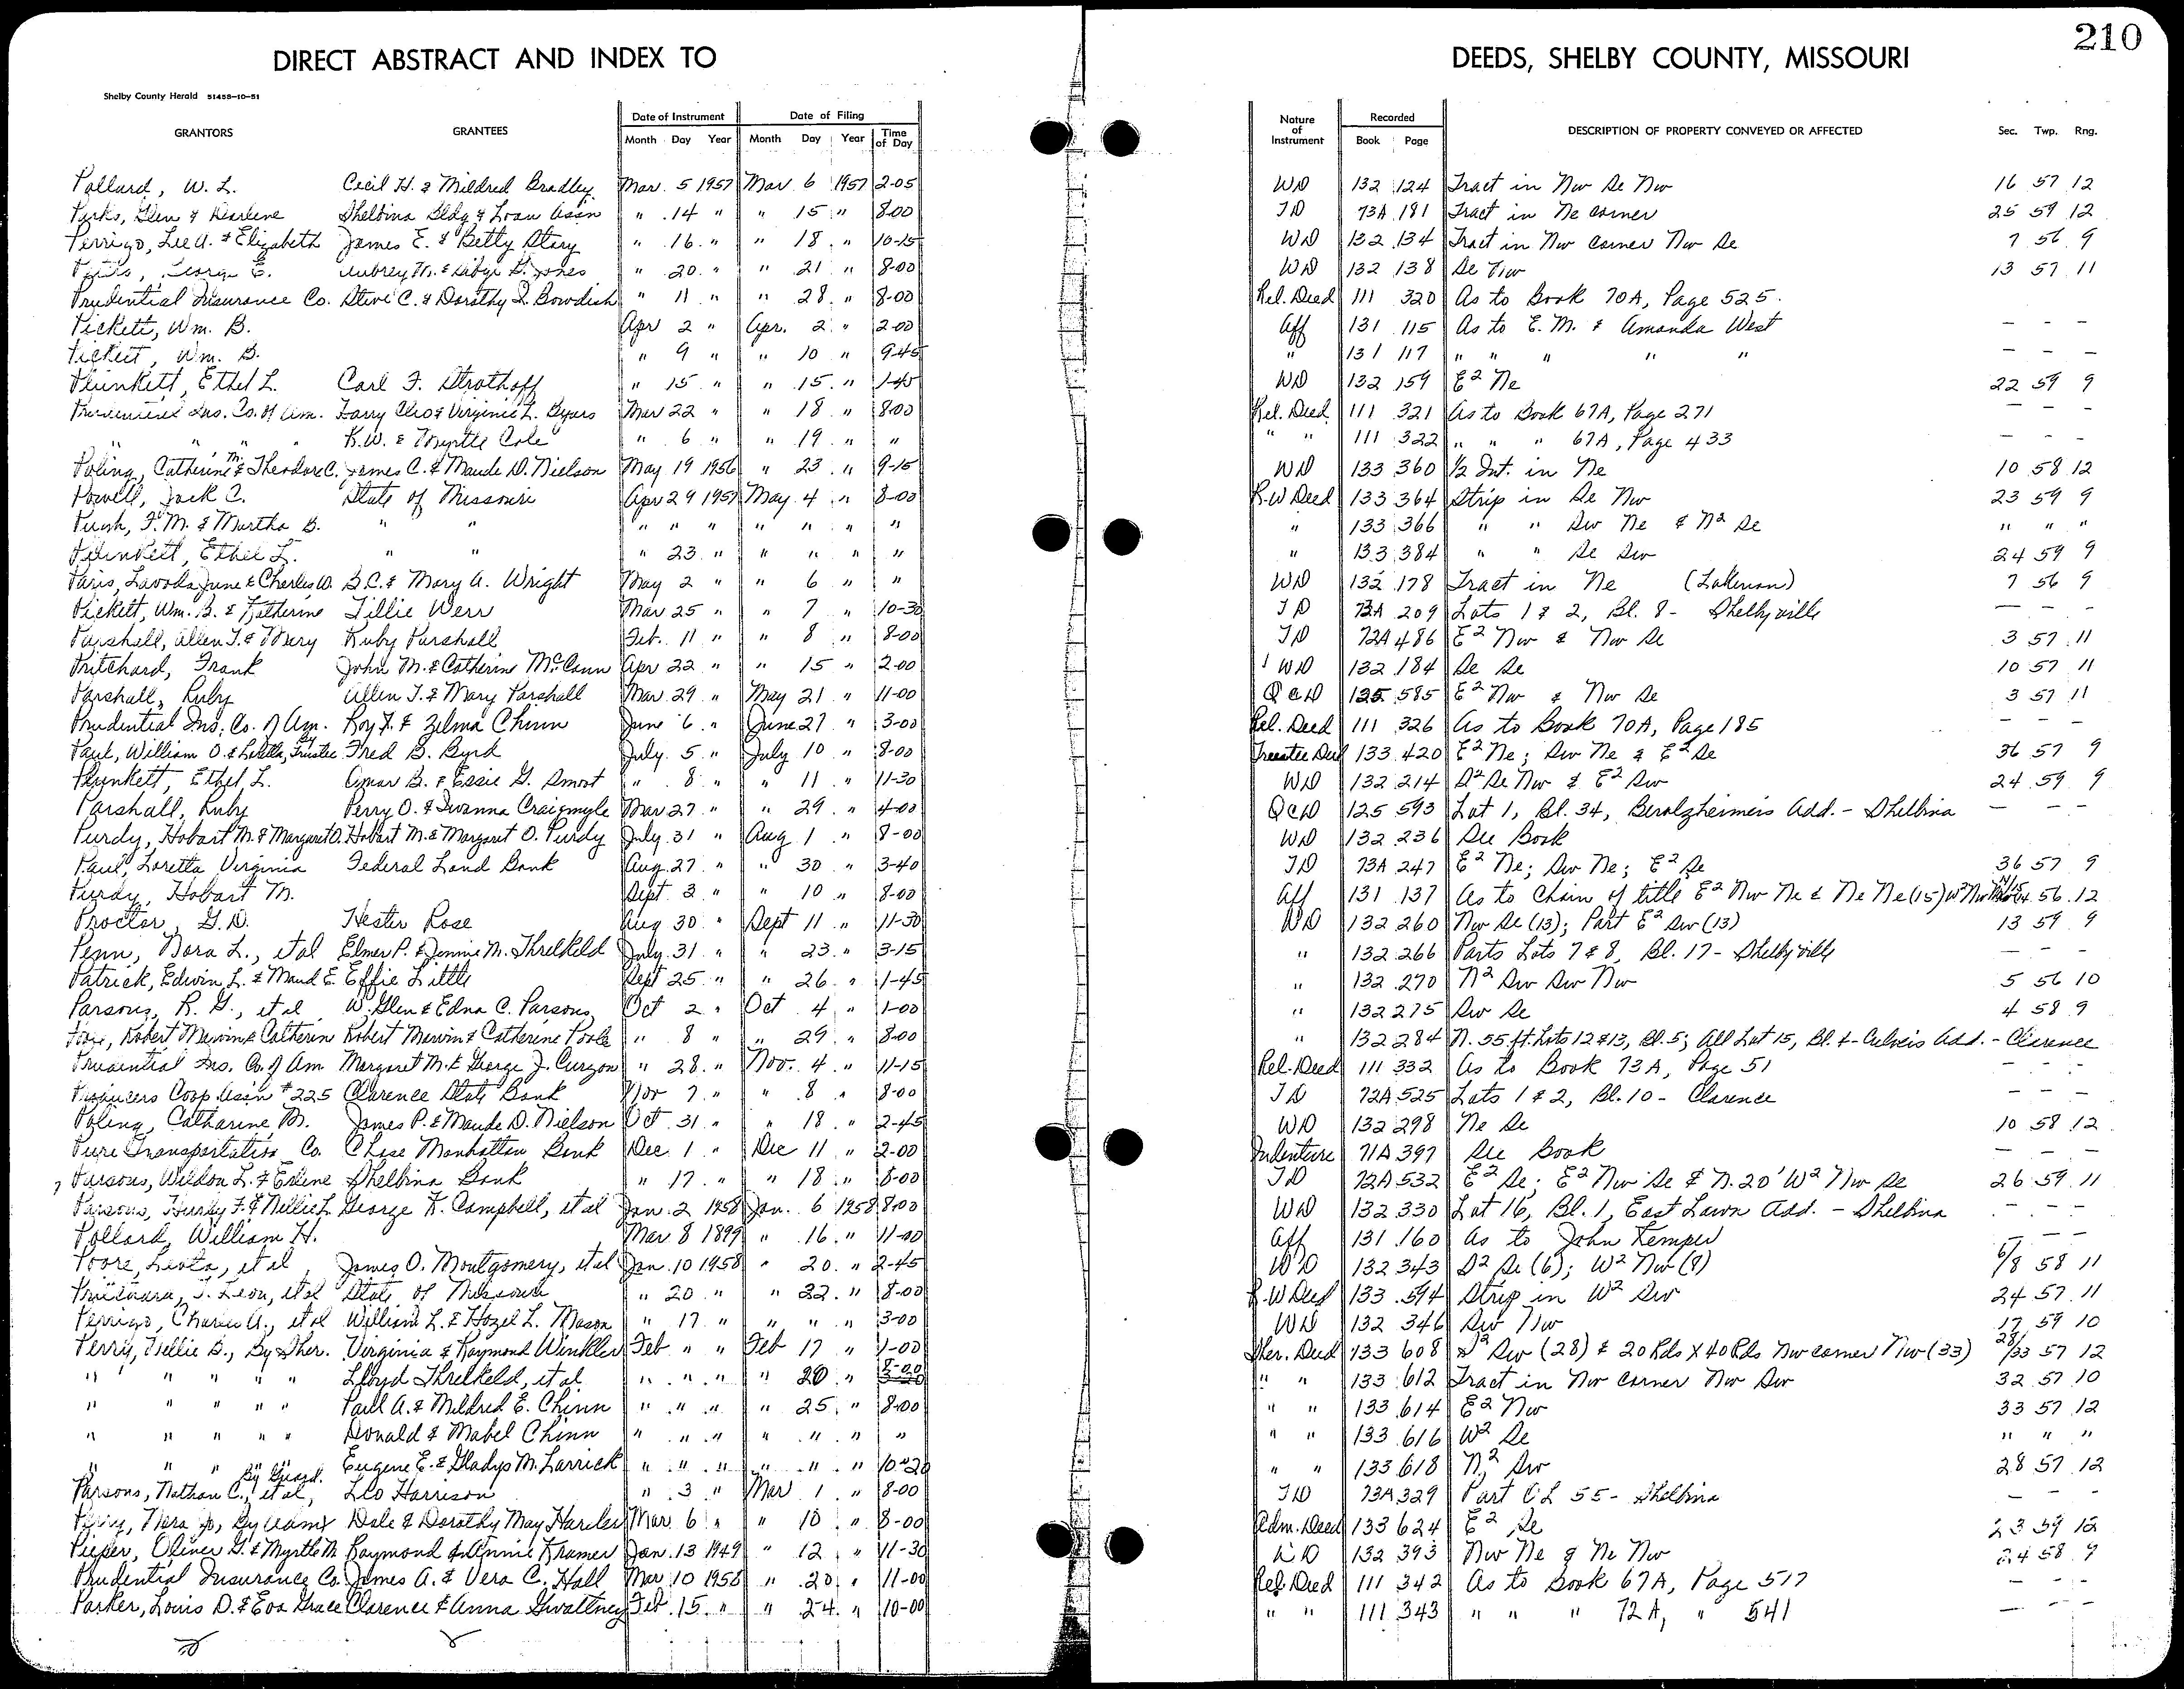 210
DIRECT ABSTRACT AND INDEX TO DEEDS, SHELBY COUNTY, MISSOURI
Shelby County Herald 51458-10-51
GRANTORS GRANTEES Date of Instrument Date of Filing Nature of Instrument Recorded DESCRIPTION OF PROPERTY CONVEYED OR AFFECTED Sec. Twp. Rng.
Month Day Year Month Day Year Time of Day Book Page
Pollard, W. L. Cecil H. & Mildred Bradley Mar. 5 1957 Mar 6 1957 2-05 WD 132 124 Tract in Nw Se Nw 16 57 12
Parks, Glen & Earlene Shelbina Bldg & Loan Assn " 14 " " 15 " 8-00 TD 73A 191 Tract in Ne corner 25 59 12
Perrigo, Lee A. & Elizabeth James E. & Betty Stary " 16 " " 18 " 10-15 WD 132 134 Tract in Nw corner Nw Se 7 56 9
George E. Aubrey M. & Jones " 20 " " 21 " 8-00 WD 132 138 Se Nw 13 57 11
Prudential Insurance Co. Steve C. & Dorothy I. Bowdish " 11 " " 28 " 8-00 Rel. Deed 111 320 As to Book 70A, Page 525 - - -
Pickett, Wm. B. Apr 2 " Apr. 2 " 2-00 Aff 131 115 As to E. M. & Amanda West - - -
Pickett, Wm. B. " 9 " " 10 " 9-45 " 131 117 " " " " " - - -
Plunkett, Ethel L. Carl F. Strothoff " 15 " " 15 " 1-45 WD 132 159 E² Ne 22 59 9
Prudential Ins. Co. of Am. Harry Cleo & Virginia L. Byars Mar 22 " " 18 " 8-00 Rel. Deed 111 321 As to Book 67A, Page 271 - - -
" " " " R.W. & Myrtle Cole " 6 " " 19 " " " " 111 322 " " " 67A, Page 433 - - -
Poling, Catherine M. & Theodore C. James C. & Maude D. Nielson May 19 1956 " 23 " 9-15 WD 133 360 1/2 Int. in Ne 10 58 12
Powell, Jack C. State of Missouri Apr 29 1957 May 4 " 8-00 R-W Deed 133 364 Strip in Se Nw 23 59 9
Pugh, F. M. & Martha B. " " " " " " " " " " 133 366 " " Sw Ne & N² Se " " "
Plunkett, Ethel L. " " " 23 " " " " " " 133 384 " " Se Sw 24 59 9
Paris, Lavoda June & Charles W. B.C. & Mary A. Wright May 2 " " 6 " " WD 132 178 Tract in Ne (Lakenan) 7 56 9
Pickett, Wm. B. & Katherine Tillie Werr Mar 25 " " 7 " 10-30 TD 73A 209 Lots 1 & 2, Bl. 8 - Shelbyville - - -
Parshall, Allen T. & Mary Ruby Parshall Feb. 11 " " 8 " 8-00 TD 72A 486 E² Nw & Nw Se 3 57 11
Pritchard, Frank John M. & Catherin McCann Apr 22 " " 15 " 2-00 WD 132 184 Se Se 10 57 11
Parshall, Ruby Allen T. & Mary Parshall Mar. 29 " May 21 " 11-00 QCD 125 585 E² Nw & Nw Se 3 57 11
Prudential Ins. Co. of Am. Roy F. & Zelma Chinn June 6 " June 27 " 3-00 Rel. Deed 111 326 As to Book 70A, Page 185 - - -
Paul, William O. & Loretta, By Trustee Fred B. Byrd July 5 " July 10 " 8-00 Trustee Deed 133 420 E² Ne; Sw Ne & E² Se 36 57 9
Plunkett, Ethel L. Omar B. & Essie G. Smoot " 8 " " 11 " 11-30 WD 132 214 S² Se Nw & E² Sw 24 59 9
Parshall, Ruby Perry O. & Iwanna Craigmyle Mar 27 " " 29 " 4-00 QCD 125 593 Lot 1, Bl. 34, Berolzheimer's Add. - Shelbina - - -
Purdy, Hobart M. & Margaret O. Hobart M. & Margaret O. Purdy July 31 " Aug 1 " 8-00 WD 132 236 See Book
Paul, Loretta Virginia Federal Land Bank Aug. 27 " " 30 " 3-40 TD 73A 247 E² Ne; Sw Ne; E² Se 36 57 9
Purdy, Hobart M. Sept 3 " " 10 " 8-00 Aff 131 137 As to Chain of title E² Nw Ne & Ne Ne (15) W² Nw 56 12
Proctor, G. D. Hester Rose Aug 30 " Sept 11 " 11-30 WD 132 260 Nw Se (13); Part E² Sw (13) 13 59 9
Penn, Nora L., et al Elmer P. & Jennie M. Threlkeld July 31 " " 23 " 3-15 " 132 266 Parts Lots 7 & 8, Bl. 17 - Shelbyville - - -
Patrick, Edwin L. & Maud E. Effie Little Sept 25 " " 26 " 1-45 " 132 270 N² Sw Sw Nw 5 56 10
Parsons, R. G., et al W. Glen & Edna C. Parsons Oct 2 " Oct 4 " 1-00 " 132 275 Sw Se 4 58 9
Poole, Robert Mervin & Catherin Robert Mervin & Catherine Poole " 8 " " 29 " 8-00 " 132 284 N. 55 ft. Lots 12 & 13, Bl. 5; All Lot 15, Bl. 4 - Culver's Add. - Clarence
Prudential Ins. Co. of Am Margaret M. & George J. Curzon " 28 " Nov. 4 " 11-15 Rel. Deed 111 332 As to Book 73A, Page 51 - - -
Producers Coop Assn #225 Clarence State Bank Nov 7 " " 8 " 8-00 TD 72A 525 Lots 1 & 2, Bl. 10 - Clarence - - -
Poling, Catharine M. James P. & Maude D. Nielson Oct 31 " " 18 " 2-45 WD 132 298 Ne Se 10 58 12
Pure Transportation Co. Chase Manhattan Bank Dec. 1 " Dec 11 " 2-00 Indenture 71A 397 See Book - - -
Parsons, Weldon L. & Erlene Shelbina Bank " 17 " " 18 " 8-00 TD 72A 532 E² Se; E² Nw Se & N. 20' W² Nw Se 26 59 11
Parsons, F. & Nellie L. George K. Campbell, et al Jan. 2 1958 Jan. 6 1958 8-00 WD 132 330 Lot 16, Bl. 1, East Lawn Add. - Shelbina - - -
Pollard, William H. Mar 8 1899 " 16 " 11-00 Aff 131 160 As to John Kemper - - -
Poore, Leota, et al James O. Montgomery, et al Jan. 10 1958 " 20 " 2-45 WD 132 343 S² Se (6); W² Nw (8) 6/8 58 11
J. Leon, et al State of Missouri " 20 " " 22 " 8-00 R-W Deed 133 594 Strip in W² Sw 24 57 11
Perrigo, Charles A., et al William L. & Hazel L. Mason " 17 " " " " 3-00 WD 132 346 Sw Nw 17 59 10
Perry, Nellie B., By Sher. Virginia & Raymond Winkler Feb " " Feb 17 " 1-00 Sher. Deed 133 608 S² Sw (28) & 20 Rds X 40 Rds Nw corner Nw (33) 28/33 57 12
" " " " " Lloyd Threlkeld, et al " " " " 20 " " " 133 612 Tract in Nw Corner Nw Sw 32 57 10
" " " " " Paull A. & Mildred E. Chinn " " " " 25 " 8-00 " " 133 614 E² Nw 33 57 12
" " " " " Donald & Mabel Chinn " " " " " " " " " 133 616 W² Se " " "
" " " " " Eugene E. & Gladys M. Larrick " " " " " " 10-20 " " 133 618 N² Sw 28 57 12
Parsons, Nathan C., et al, By Guard. Leo Harrison " 3 " Mar 1 " 8-00 TD 73A 329 Part OL 55 - Shelbina - - -
By Dale & Dorothy May Mar 6 " " 10 " 8-00 Adm. Deed 133 624 E² Se 23 59 12
Pieper, Oliver G. & Myrtle M. Raymond & Annie Kramer Jan. 13 1949 " 12 " 11-30 WD 132 393 Nw Ne & Ne Nw 24 58 9
Prudential Insurance Co. James A. & Vera C. Hall Mar 10 1958 " 20 " 11-00 Rel. Deed 111 342 As to Book 67A, Page 517 - - -
Parker, Louis D. & Eva Grace Clarence & Anna Gwaltney Feb. 15 " " 24 " 10-00 " " 111 343 " " " 72A, " 541 - - -